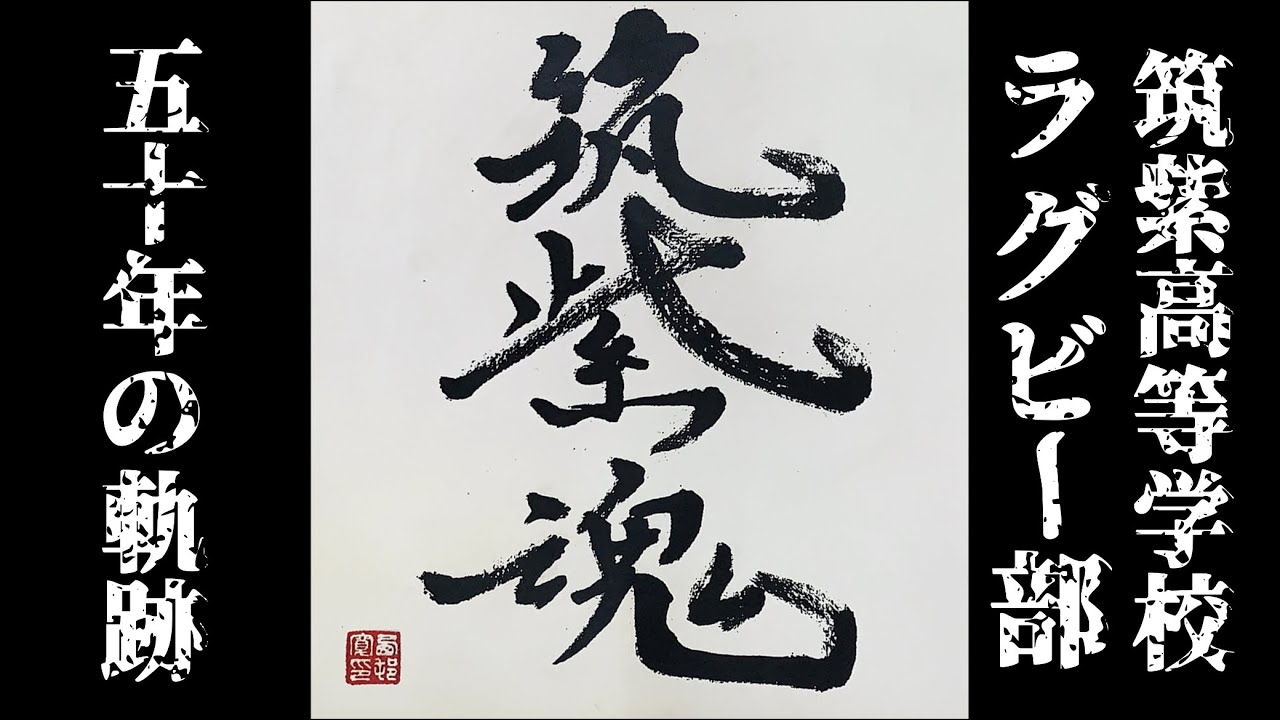 筑紫高等学校
ラグビー部
筑紫魂
五十年の軌跡